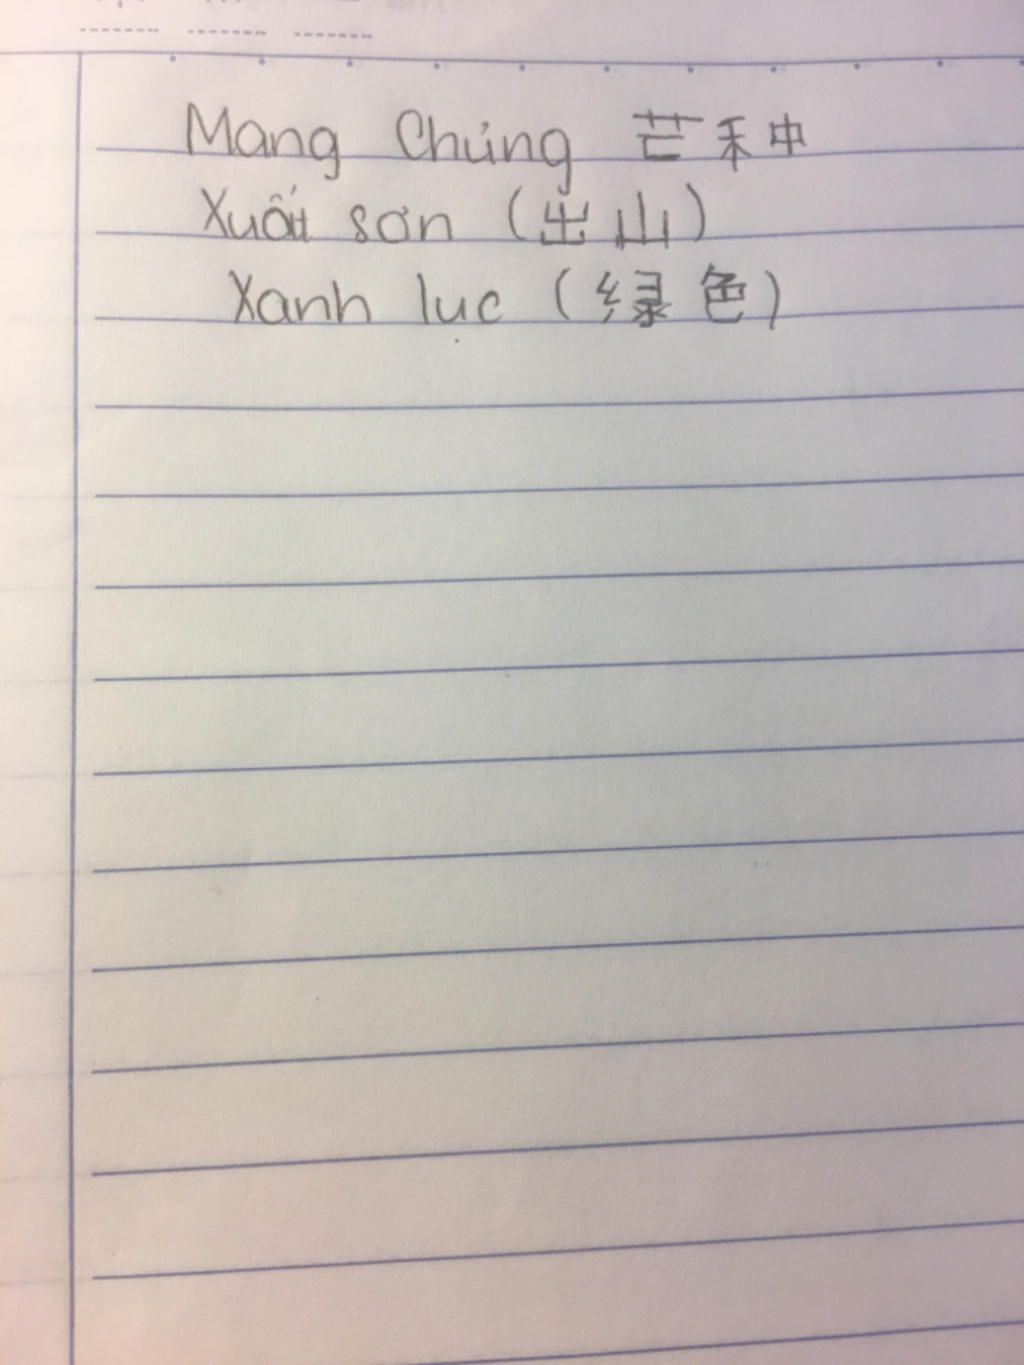 Mang Chủng 芒种
Xuất sơn (出山)
Xanh lục (绿色)